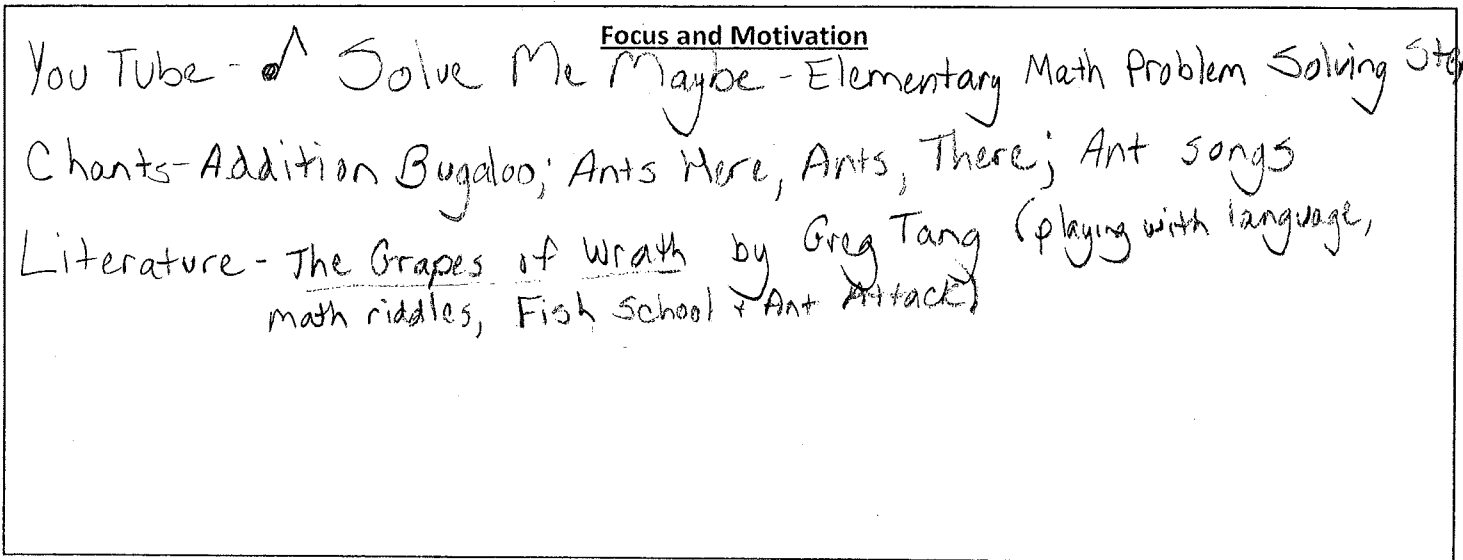 Focus and Motivation
You Tube - ♪ Solve Me Maybe - Elementary Math Problem Solving Ste
Chants - Addition Bugaloo; Ants Here, Ants, There; Ant songs
Literature - The Grapes of Wrath by Greg Tang (playing with language,
math riddles, Fish School + Ant Attack)